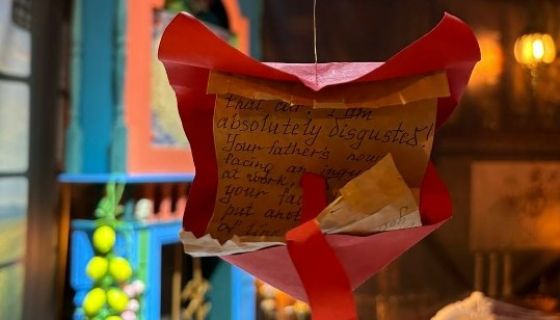 that car, I am
absolutely disgusted!
Your father's now
facing an inqu
at work,
your fau
put anot
of line